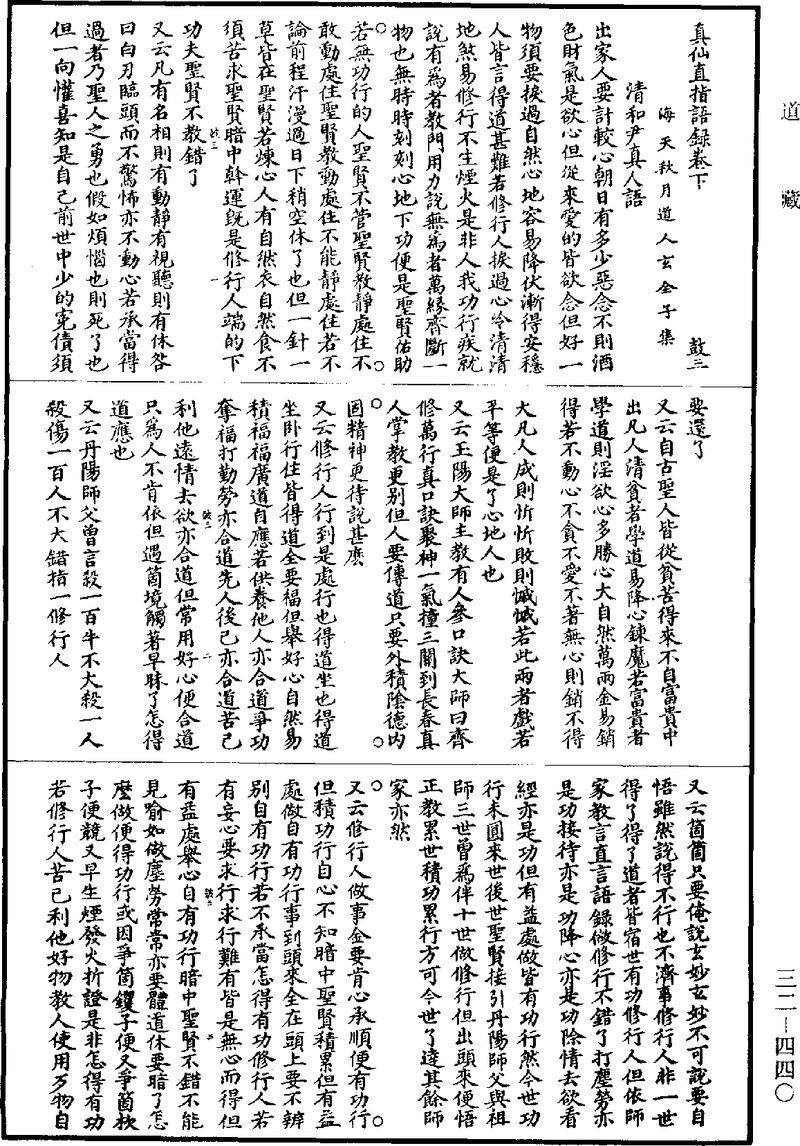 道藏
真仙直指語錄卷下　鼓三
海天秋月道人玄全子集
清和尹真人語
出家人要計較心朝日有多少惡念不則酒
色財氣是欲心但從來愛的皆欲念但好一
物須要捩過自然心地容易降伏漸得安穩
人皆言得道甚難若修行人捩過心冷清清
地煞易修行不生煙火是非人我功行疾就
說有為者教門用力說無為者萬緣齊斷一
物也無時時刻刻心地下功便是聖賢佑助
若無功行的人聖賢不管聖賢教靜處住不
敢動處住聖賢教動處住不能靜處住若不
論前程汗漫過日下稍空休了也但一針一
草皆在聖賢若煉心人有自然衣自然食不
須苦求聖賢暗中斡運既是修行人端的下
功夫聖賢不教錯了
又云凡有名相則有動靜有視聽則有休咎
曰白刃臨頭而不驚怖亦不動心若承當得
過者乃聖人之勇也假如煩惱也則死了也
但一向懽喜知是自己前世中少的冤債須
要還了
又云自古聖人皆從貧苦得來不自富貴中
出凡人清貧者學道易降心鍊魔若富貴者
學道則淫欲心多勝心大自然萬兩金易銷
得若不動心不貪不愛不著無心則銷不得
大凡人成則忻忻敗則慽慽若此兩者戲若
平等便是了心地人也
又云王陽大師主教有人參口訣大師曰齊
修萬行真口訣聚神一氣撞三關到長春真
人掌教更別但人要傳道只要外積陰德內
固精神更待說甚麽
又云修行人行到是處行也得道坐也得道
坐卧行住皆得道全要福但舉好心自然易
積福福廣道自應若供養他人亦合道爭功
奪福打勤勞亦合道先人後己亦合道苦己
利他遠情去欲亦合道但常用好心便合道
只為人不肯依但遇箇境觸著早昧了怎得
道應也
又云丹陽師父曾言殺一百牛不大殺一人
殺傷一百人不大錯指一修行人
又云箇箇只要俺說玄妙玄妙不可說要自
悟雖然說得不行也不濟事修行人非一世
得了得了道者皆宿世有功修行人但依師
家教言直言語錄做修行不錯了打塵勞亦
是功接待亦是功降心亦是功除情去欲看
經亦是功但有益處做皆有功行然今世功
行未圓來世後世聖賢接引丹陽師父與祖
師三世曾為伴十世做修行但出頭來便悟
正教累世積功累行方可今世了達其餘師
家亦然
又云修行人做事金要肯心承順便有功行
但積功行自心不知暗中聖賢積累但有益
處做自有功行事到頭來全在頭上要不辨
別自有功行若不承當怎得有功修行人若
有妄心要求行求行難有皆是無心而得但
有益處舉心自有功行暗中聖賢不錯不能
見喻如做塵勞常常亦要體道休要暗了怎
麽做便得功行或因爭箇钁子便又爭箇杴
子便競又早生煙發火折證是非怎得有功
若修行人苦己利他好物教人使用歹物自
三二－四四〇